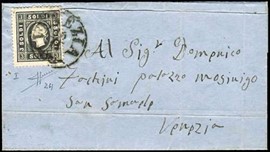 EZIA
Al Sigr Domenico
Forchini palazzo mocinigo
San Somuele
Venezia